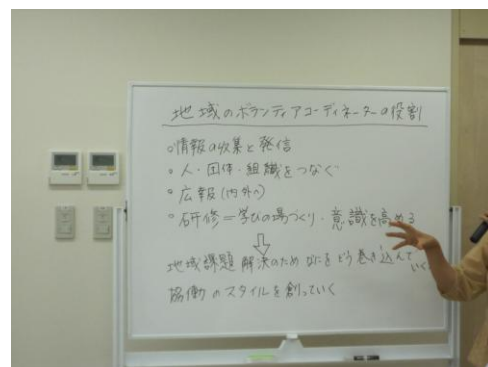 地域のボランティアコーディネーターの役割
○情報の収集と発信
○人・団体・組織をつなぐ
○広報(内外へ)
○研修=学びの場づくり・意識を高める
地域課題解決のためなにをどう巻き込んでいく
協働のスタイルを創っていく